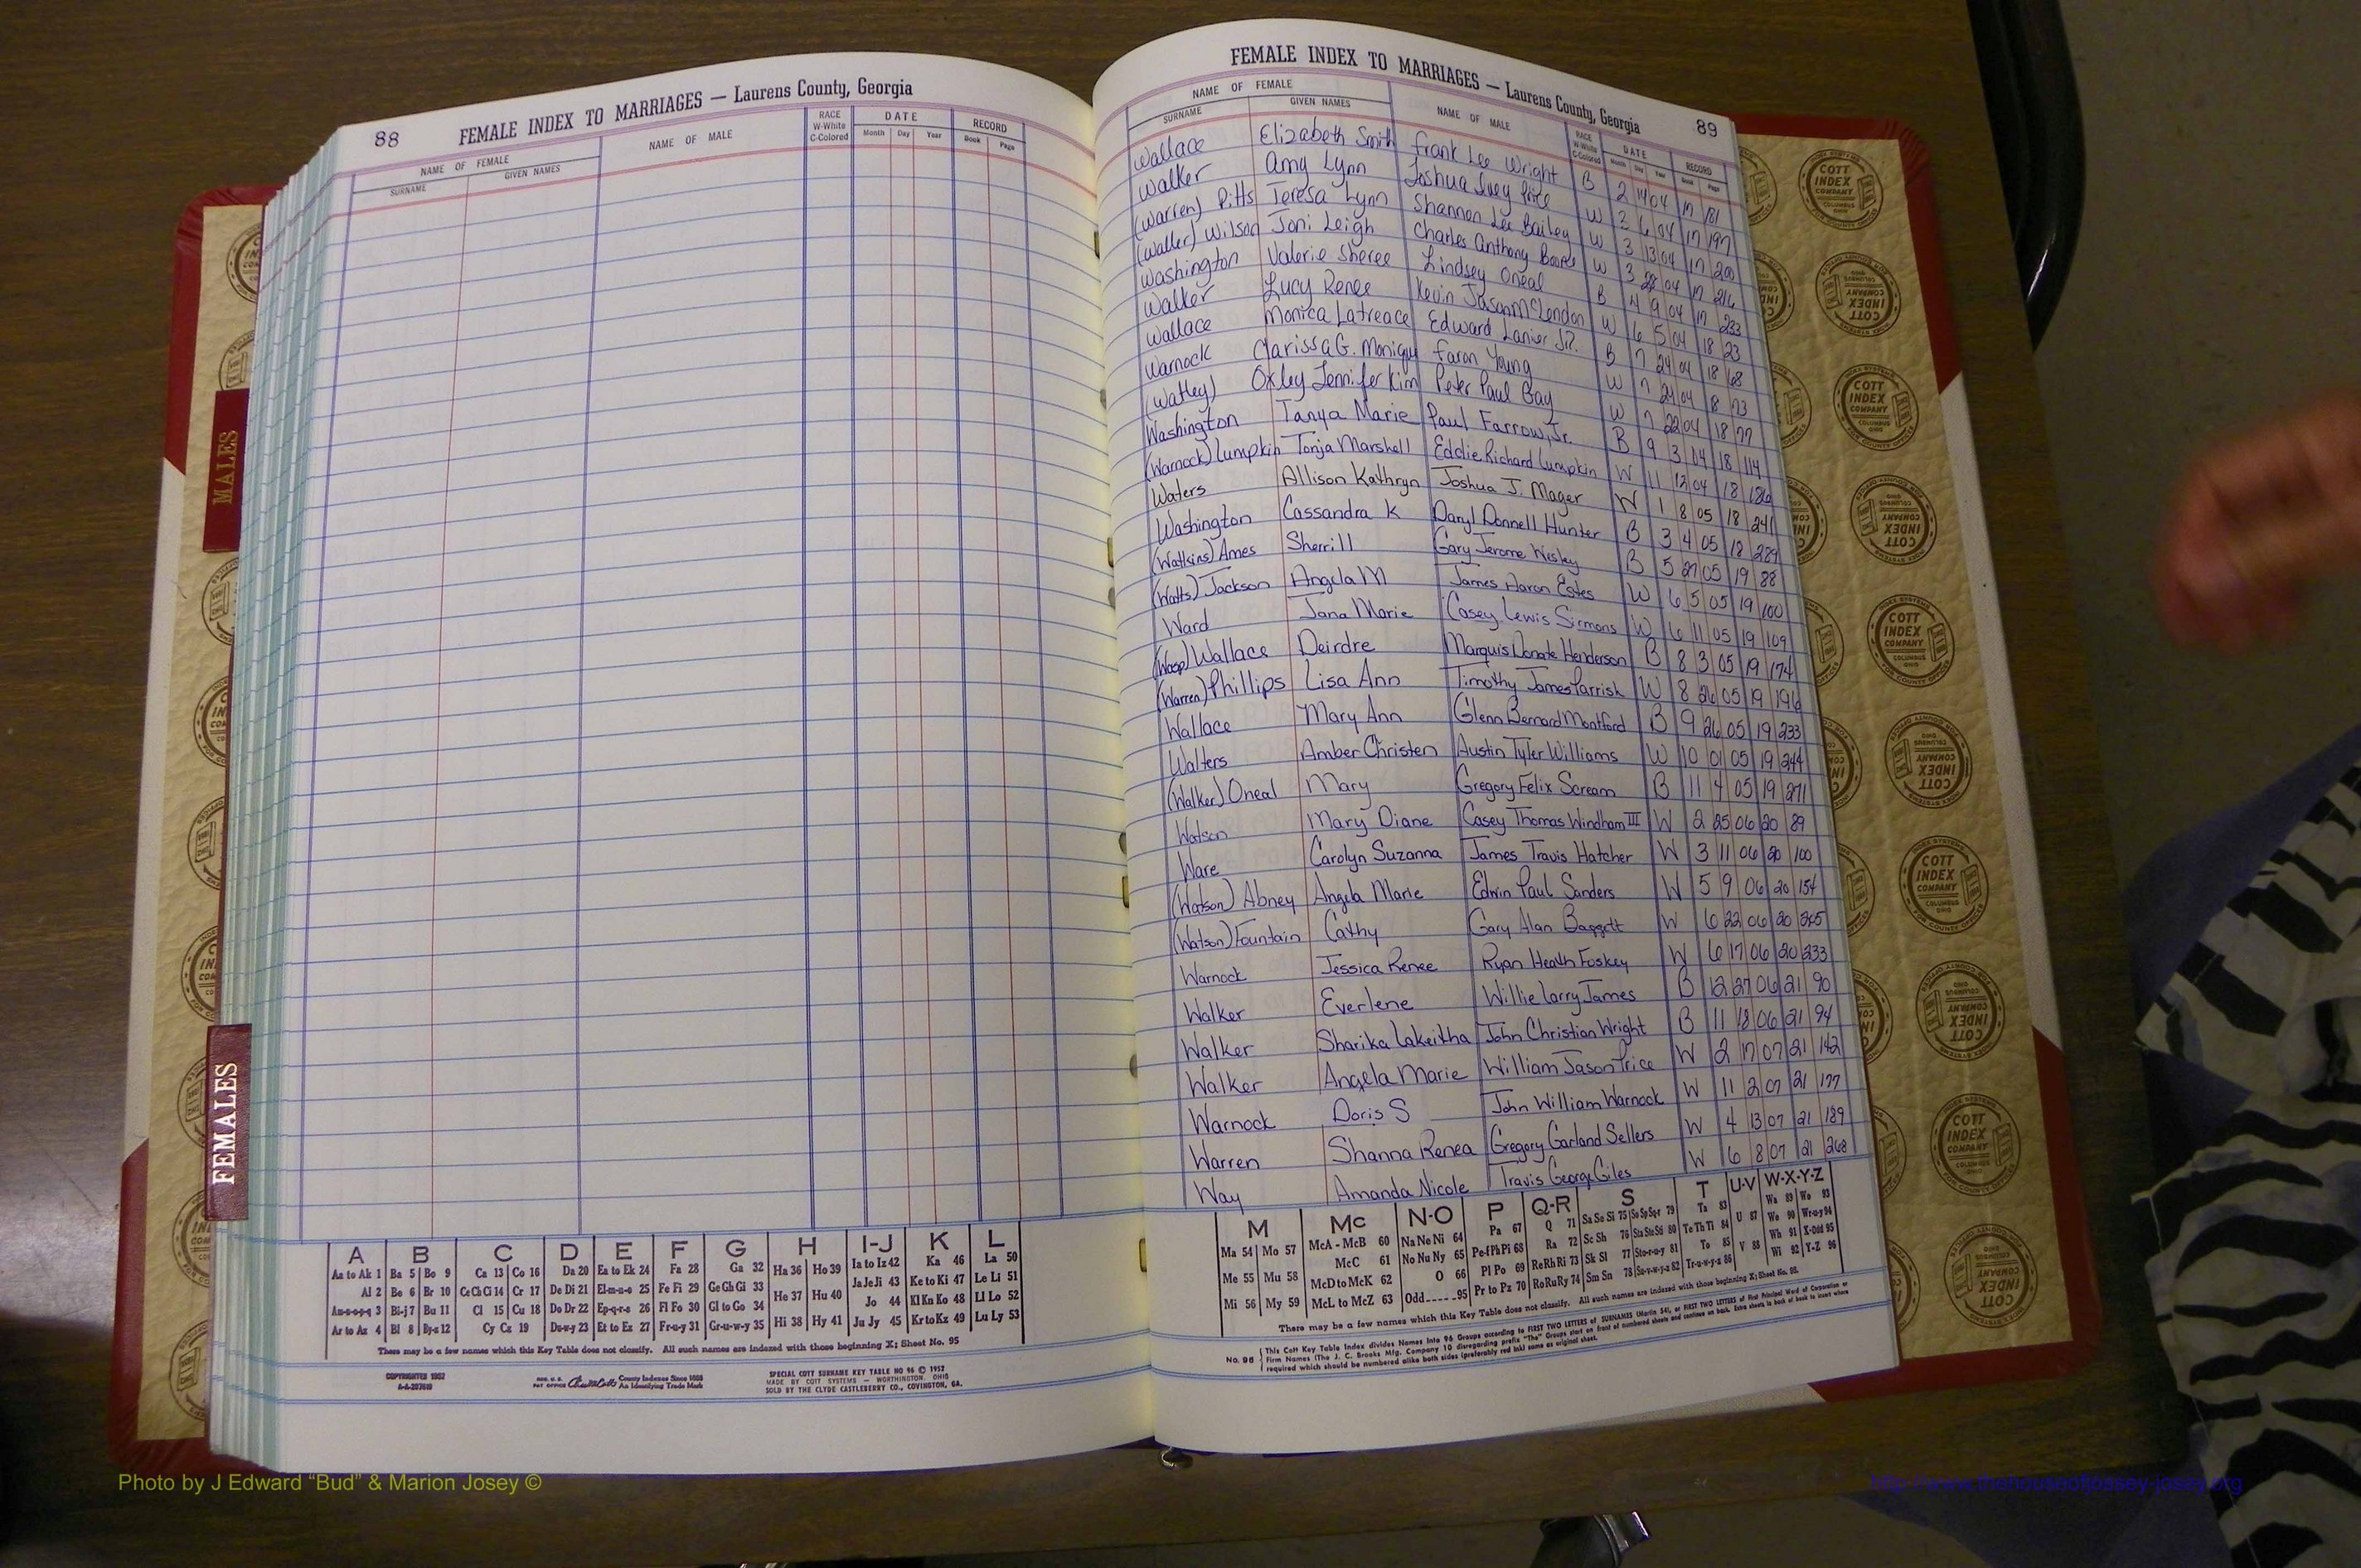 88
FEMALE INDEX TO MARRIAGES — Laurens County, Georgia
NAME OF FEMALE
SURNAME GIVEN NAMES
NAME OF MALE
RACE
W-White
C-Colored
DATE
Month Day Year
RECORD
Book Page
FEMALE INDEX TO MARRIAGES — Laurens County, Georgia
89
NAME OF FEMALE
SURNAME GIVEN NAMES
NAME OF MALE
RACE
W-White
C-Colored
DATE
Month Day Year
RECORD
Book Page
Wallace Elizabeth Smith Frank Lee Wright B 2 14 04 17 181
Walker Amy Lynn Joshua Price W 2 6 04 17 197
(Warren) Pitts Teresa Lynn Shannon Lee Bailey W 3 13 04 17 200
(Waller) Wilson Joni Leigh Charles Anthony W 3 28 04 17 216
Washington Valerie Sheree Lindsey Oneal B 4 9 04 17 233
Walker Lucy Renee Kevin Jason McLendon W 6 5 04 18 23
Wallace Monica Latreace Edward Lanier Jr. B 7 24 04 18 68
Warnock Clarissa G. Monique Faron Young W 7 21 04 18 73
(Watley) Oxley Jennifer Kim Peter Paul Gay W 7 22 04 18 77
Washington Tanya Marie Paul Farrow, Jr. B 9 3 04 18 114
(Warnock) Lumpkin Tonja Marshell Eddie Richard Lumpkin W 11 12 04 18 186
Waters Allison Kathryn Joshua J. Mager W 1 8 05 18 241
Washington Cassandra K Daryl Donnell Hunter B 3 4 05 18 289
(Watkins) Ames Sherrill Gary Jerome Wesley B 5 27 05 19 88
(Watts) Jackson Angela M James Aaron Estes W 6 5 05 19 100
Ward Jana Marie Casey Lewis Sirmons W 6 11 05 19 109
Wallace Deirdre Marquis Donate Henderson B 8 3 05 19 174
(Warren) Phillips Lisa Ann Timothy James Parrish W 8 26 05 19 196
Wallace Mary Ann Glenn Bernard Montford B 9 26 05 19 233
Walters Amber Christen Austin Tyler Williams W 10 01 05 19 244
(Walker) Oneal Mary Gregory Felix Scream B 11 4 05 19 271
Watson Mary Diane Casey Thomas Windham III W 2 25 06 20 89
Ware Carolyn Suzanna James Travis Hatcher W 3 11 06 20 100
(Watson) Abney Angela Marie Edwin Paul Sanders W 5 9 06 20 154
(Watson) Fountain Cathy Gary Alan Baggett W 6 22 06 20 245
Warnock Jessica Renee Ryan Heath Foskey W 6 17 06 20 233
Walker Everlene Willie Larry James B 12 27 06 21 90
Walker Sharika Lakeitha John Christian Wright B 11 18 06 21 94
Walker Angela Marie William Jason Price W 2 17 07 21 142
Warnock Doris S John William Warnock W 11 2 07 21 177
Warren Shanna Renea Gregory Garland Sellers W 4 13 07 21 189
Way Amanda Nicole Travis George Giles W 6 8 07 21 268
MALES
FEMALES
A B C D E F G H I-J K L
Aa to Ak 1 Ba 5 Bo 9 Ca 13 Co 16 Da 20 Ea to Ek 24 Fa 28 Ga 32 Ha 36 Ho 39 Ia to Iz 42 Ka 46 La 50
Al 2 Be 6 Br 10 Ce Ch Ci 14 Cr 17 De Di 21 El-m-n-o 25 Fe Fi 29 Ge Gh Gi 33 He 37 Hu 40 Ja Je Ji 43 Ke to Ki 47 Le Li 51
An-o-p-q 3 Bi-j 7 Bu 11 Cl 15 Cu 18 Do Dr 22 Ep-q-r-s 26 Fl Fo 30 Gl to Go 34 Jo 44 Kl Kn Ko 48 Ll Lo 52
Ar to Az 4 Bl 8 By-z 12 Cy Cz 19 Du-w-y 23 Et to Ez 27 Fr-u-y 31 Gr-u-w-y 35 Hi 38 Hy 41 Ju Jy 45 Kr to Kz 49 Lu Ly 53
There may be a few names which this Key Table does not classify. All such names are indexed with those beginning X; Sheet No. 95
COPYRIGHTED 1952
REG. U.S. PAT OFFICE County Indexes Since 1888 An Identifying Trade Mark
SPECIAL COTT SURNAME KEY TABLE NO 96 © 1952
MADE BY COTT SYSTEMS — WORTHINGTON, OHIO
SOLD BY THE CLYDE CASTLEBERRY CO., COVINGTON, GA.
M Mc N-O P Q-R S T U-V W-X-Y-Z
Ma 54 Mo 57 McA - McB 60 Na Ne Ni 64 Pa 67 Q 71 Sa Se Si 75 So Sp Sq-r 79 Ta 83 U 87 Wa 89 Wo 93
Me 55 Mu 58 McC 61 No Nu Ny 65 Pe-f Ph Pi 68 Ra 72 Sc Sh 76 Sta Ste Sti 80 Te Th Ti 84 We 90 Wr-u-y 94
McD to McK 62 O 66 Pl Po 69 Re Rh Ri 73 Sk Sl 77 Sto-r-u-y 81 To 85 V 88 Wh 91 X-Odd 95
Mi 56 My 59 McL to McZ 63 Odd 95 Pr to Pz 70 Ro Ru Ry 74 Sm Sn 78 Su-v-w-y-z 82 Tr-u-w-y-z 86 Wi 92 Y-Z 96
There may be a few names which this Key Table does not classify. All such names are indexed with those beginning X; Sheet No. 95.
No. 96 This Cott Key Table Index divides Names into 96 Groups according to FIRST TWO LETTERS of SURNAMES (Martin 54), or FIRST TWO LETTERS of First Principal Word of Corporation or
Firm Names (The J. C. Brooks Mfg. Company 10 disregarding prefix "The" Groups start on front of numbered sheets and continue on back. Extra sheets in back of book to insert where
required which should be numbered alike both sides (preferably red ink) same as original sheet.
COTT
INDEX
COMPANY
COLUMBUS
OHIO
Photo by J Edward “Bud” & Marion Josey ©
http://www.thehouseofjossey-josey.org